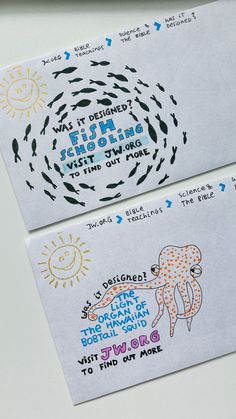 JW.ORG > BIBLE TEACHINGS > SCIENCE & THE BIBLE > WAS IT DESIGNED?
WAS IT DESIGNED?
FISH
SCHOOLING
VISIT JW.ORG
TO FIND OUT MORE
JW.ORG > BIBLE TEACHINGS > SCIENCE & THE BIBLE > WA
WAS IT DESIGNED?
THE
LIGHT
ORGAN OF
THE HAWAIIAN
BOBTAIL SQUID
VISIT JW.ORG
TO FIND OUT MORE